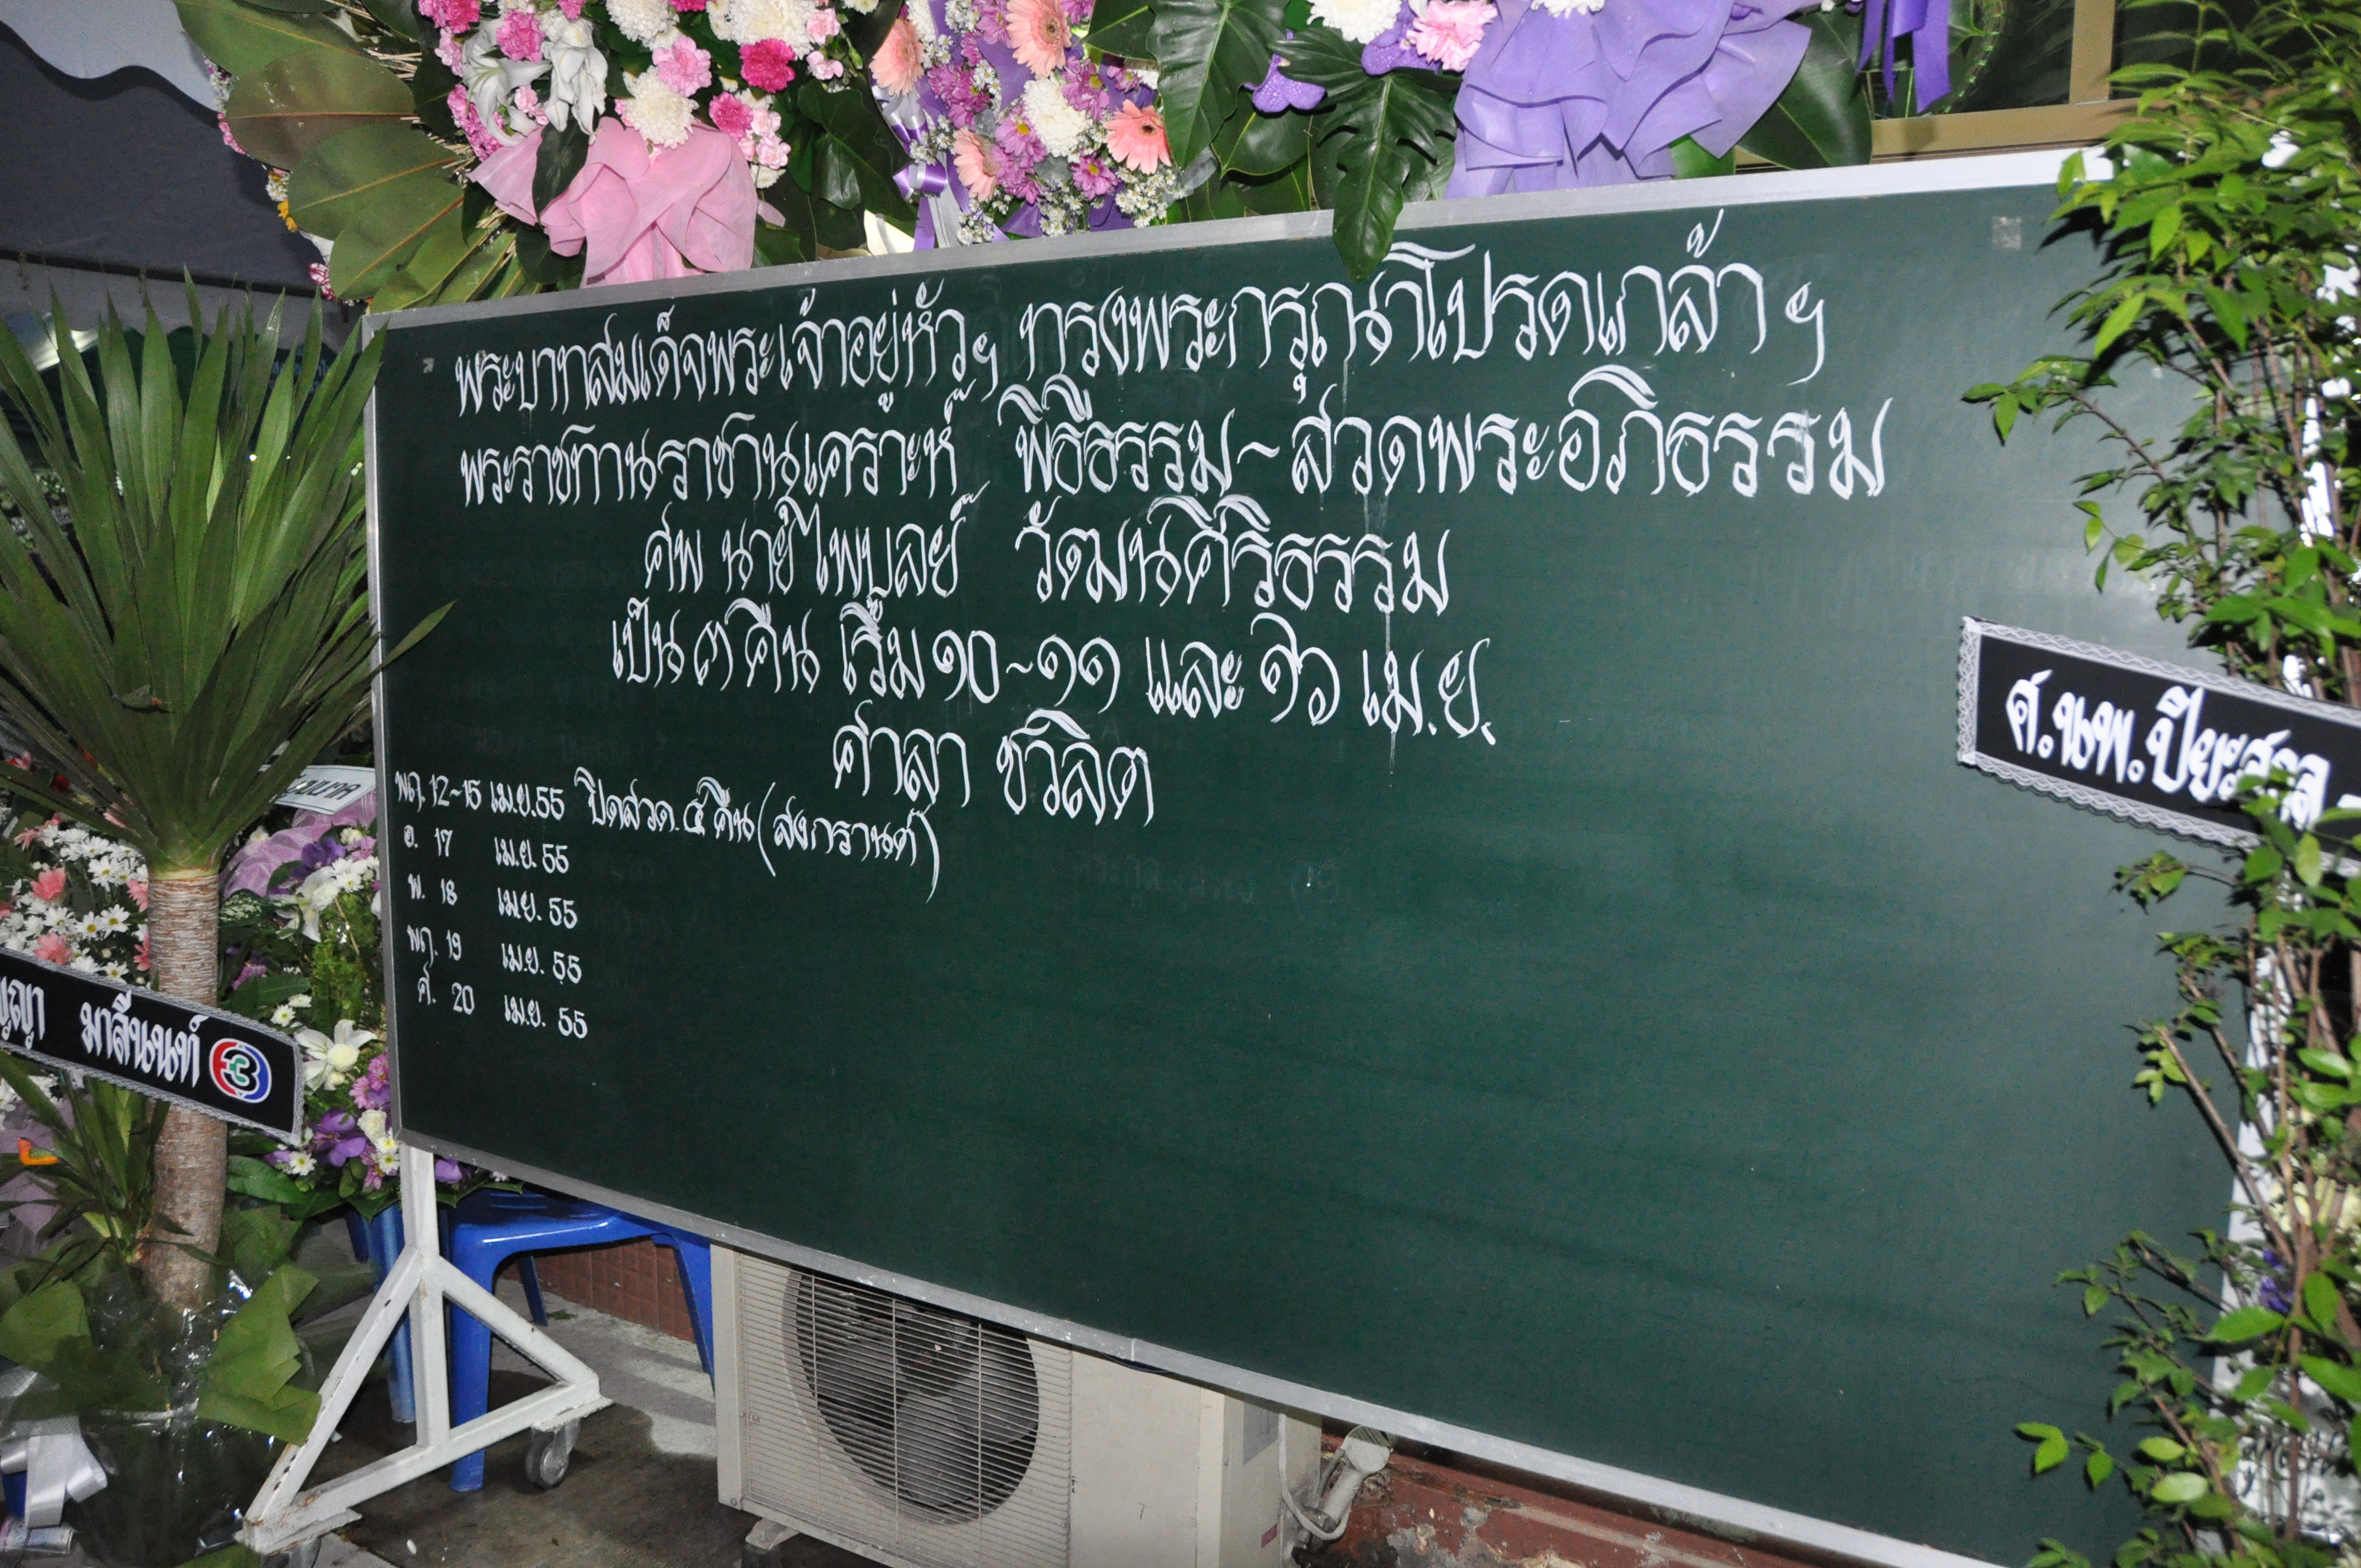 พระบาทสมเด็จพระเจ้าอยู่หัวฯ ทรงพระกรุณาโปรดเกล้าฯ
พระราชทานราชานุเคราะห์ พิธีธรรม-สวดพระอภิธรรม
ศพ นายไพบูลย์ วัฒนศิริธรรม
เป็น ๓ คืน เริ่ม ๑๐-๑๑ และ ๑๖ เม.ย.
ศาลา ชวลิต
พฤ. 12-16 เม.ย. 55 ปิดสวด ๕ คืน (สงกรานต์)
อ. 17 เม.ย. 55
พ. 18 เม.ย. 55
พฤ. 19 เม.ย. 55
ศ. 20 เม.ย. 55
ศ.นพ.ปิยะสกล
มาลีนนท์ 3